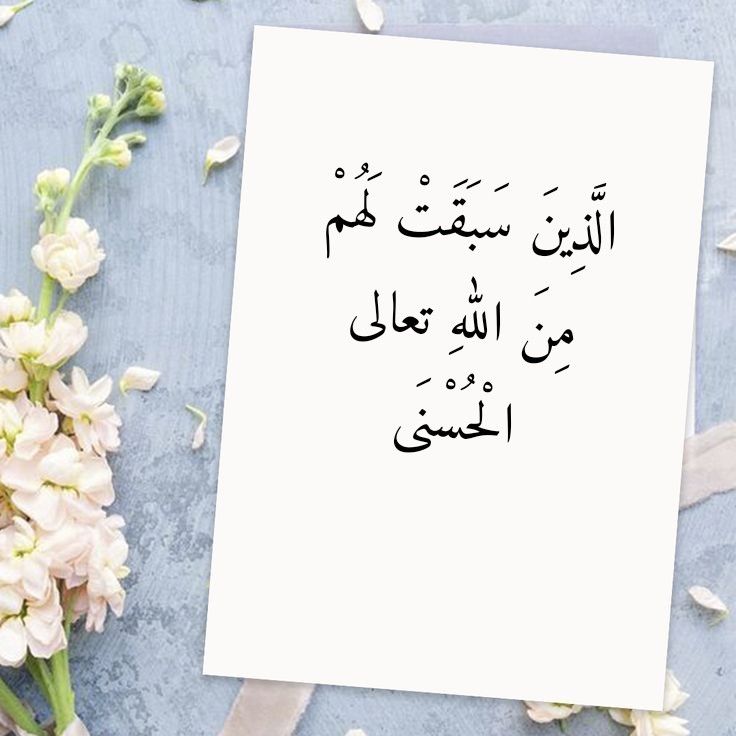 الَّذِينَ سَبَقَتْ لَهُمْ
مِنَ اللهِ تعالى
الْحُسْنَى